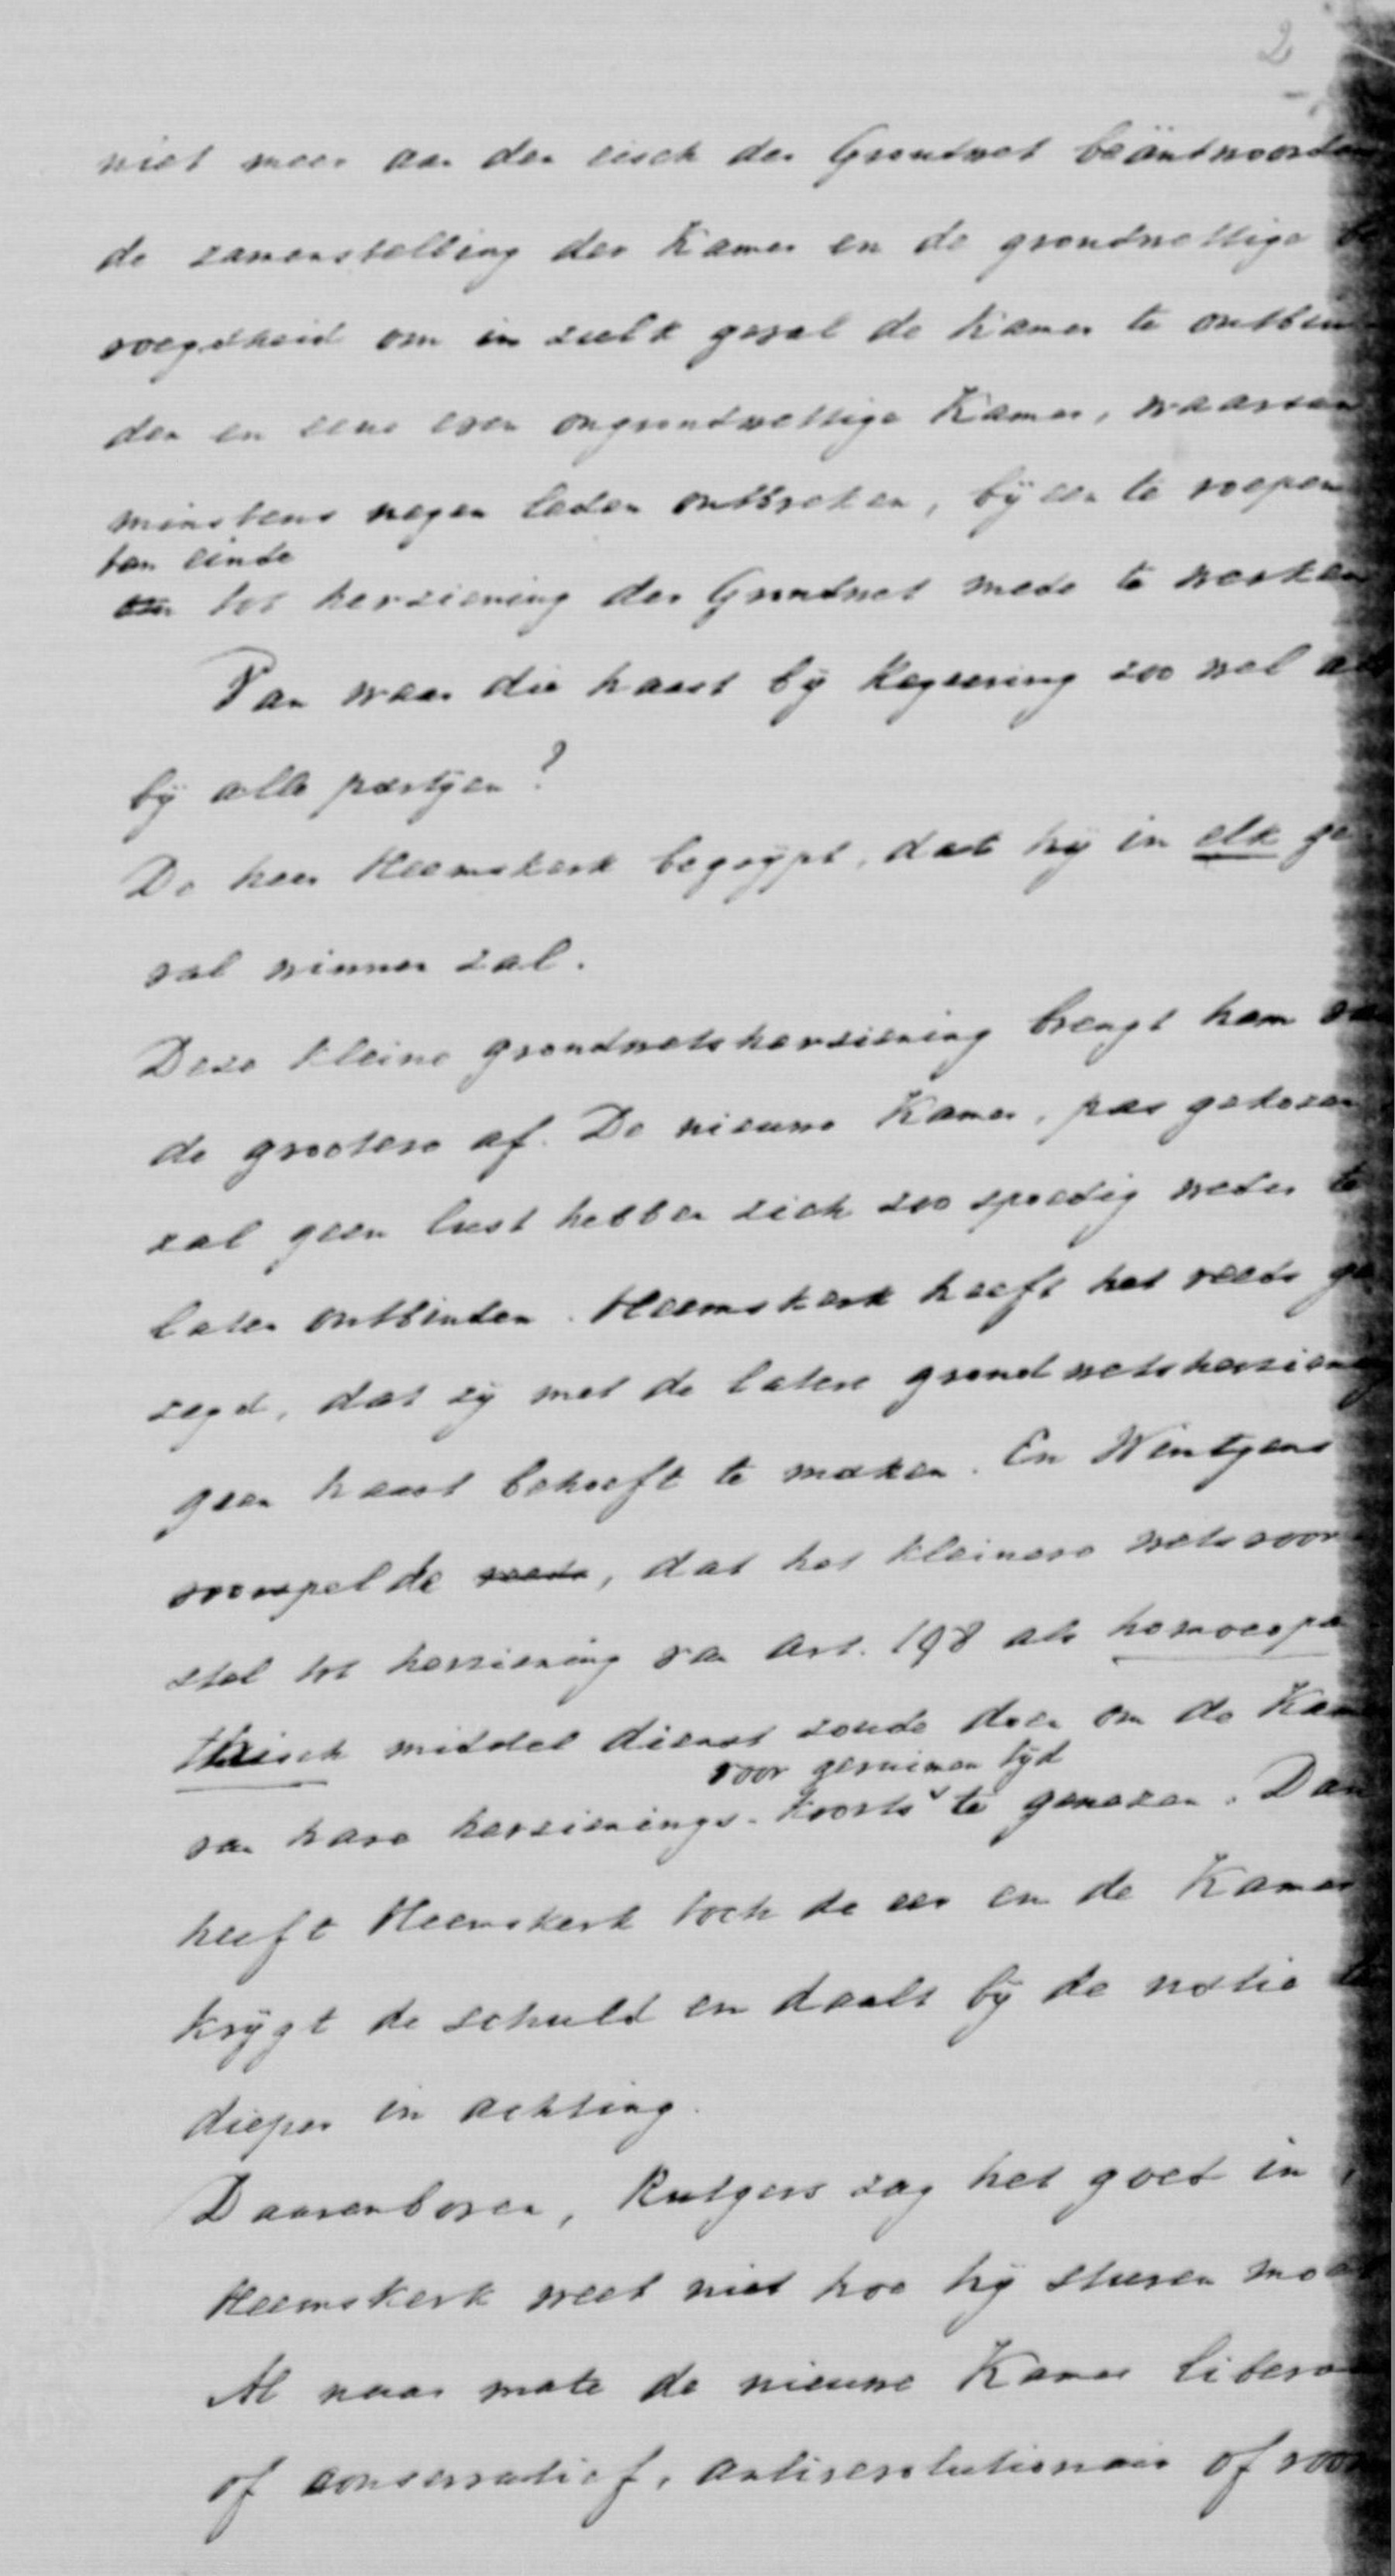 2
niet meer aan den eisch der Grondwet beäntwoorden
de zamenstelling der Kamer en de grondwettige be
voegdheid om in zulk geval de Kamer te ontbin
den en eene even ongrondwettige Kamer, waarvan
minstens negen leden ontbreken, byeen te roepen
ten einde
om tot herziening der Grondwet mede te werken
Van waar die haast by Regeering zoo wel als
by alle partyen?
De heer Heemskerk begrypt, dat hy in elk ge
val winnen zal.
Deze kleine grondwetsherziening brengt hem van
de grootere af. De nieuwe Kamer, pas gekozen
zal geen lust hebben zich zoo spoedig weder te
laten ontbinden. Heemskerk heeft het reeds ge
zegd, dat zy met de latere grondwetsherziening
geen haast behoeft te maken. En Wintgens
voorspelde reeds, dat het kleinere wetsvoor
stel tot herziening van Art. 198 als homoeopa
thisch middel dienst zoude doen om de Kamer
voor geruimen tyd
van hare herzienings-koorts te genezen. Dan
heeft Heemskerk toch de eer en de Kamer
krygt de schuld en daalt by de natie
dieper in achting.
Daarenboven, Rutgers zag het goed in,
Heemskerk weet niet hoe hy sturen moet
Al naar mate de nieuwe Kamer liberaal
of conservatief, antirevolutionair of voor